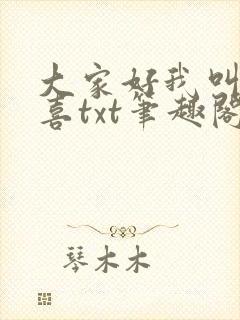 大家好我叫
喜txt笔趣阁
琴木木